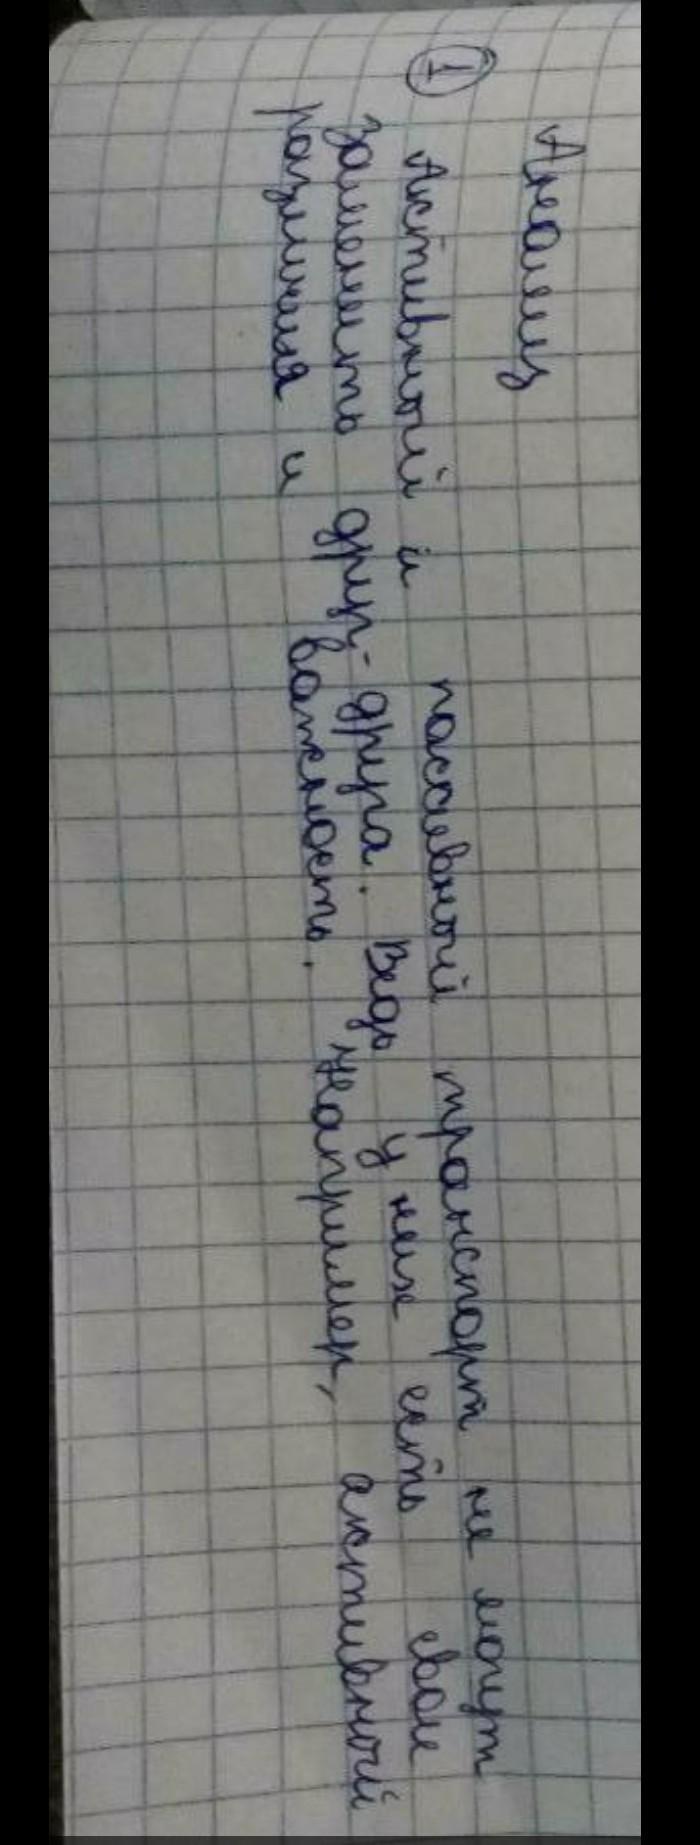 Анализ
① Активный и пассивный транспорт не могут
заменить друг-друга. Ведь у них есть свои
различия и важность. Например, активный